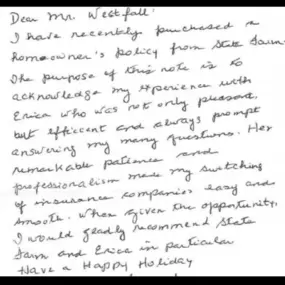 Dear Mr. Westfall:
I have recently purchased a
homeowner's policy from State Farm.
The purpose of this note is to
acknowledge my experience with
Erica who was not only pleasant,
but efficient and always prompt
answering my many questions. Her
remarkable patience and
professionalism made my switching
of insurance companies easy and
smooth. When given the opportunity,
I would gladly recommend State
Farm and Erica in particular
Have a Happy Holiday